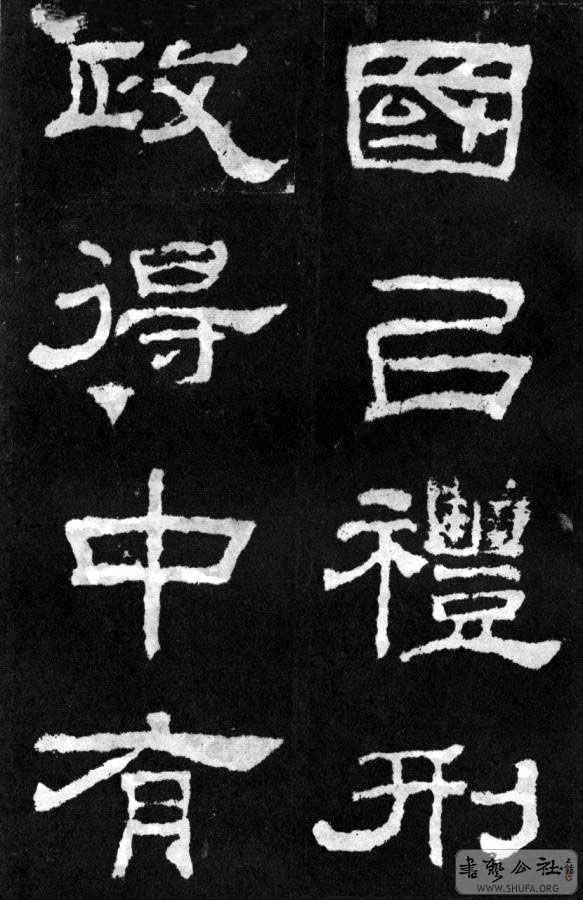 國㠯禮刑
政得中有
書藝公社
WWW.SHUFA.ORG